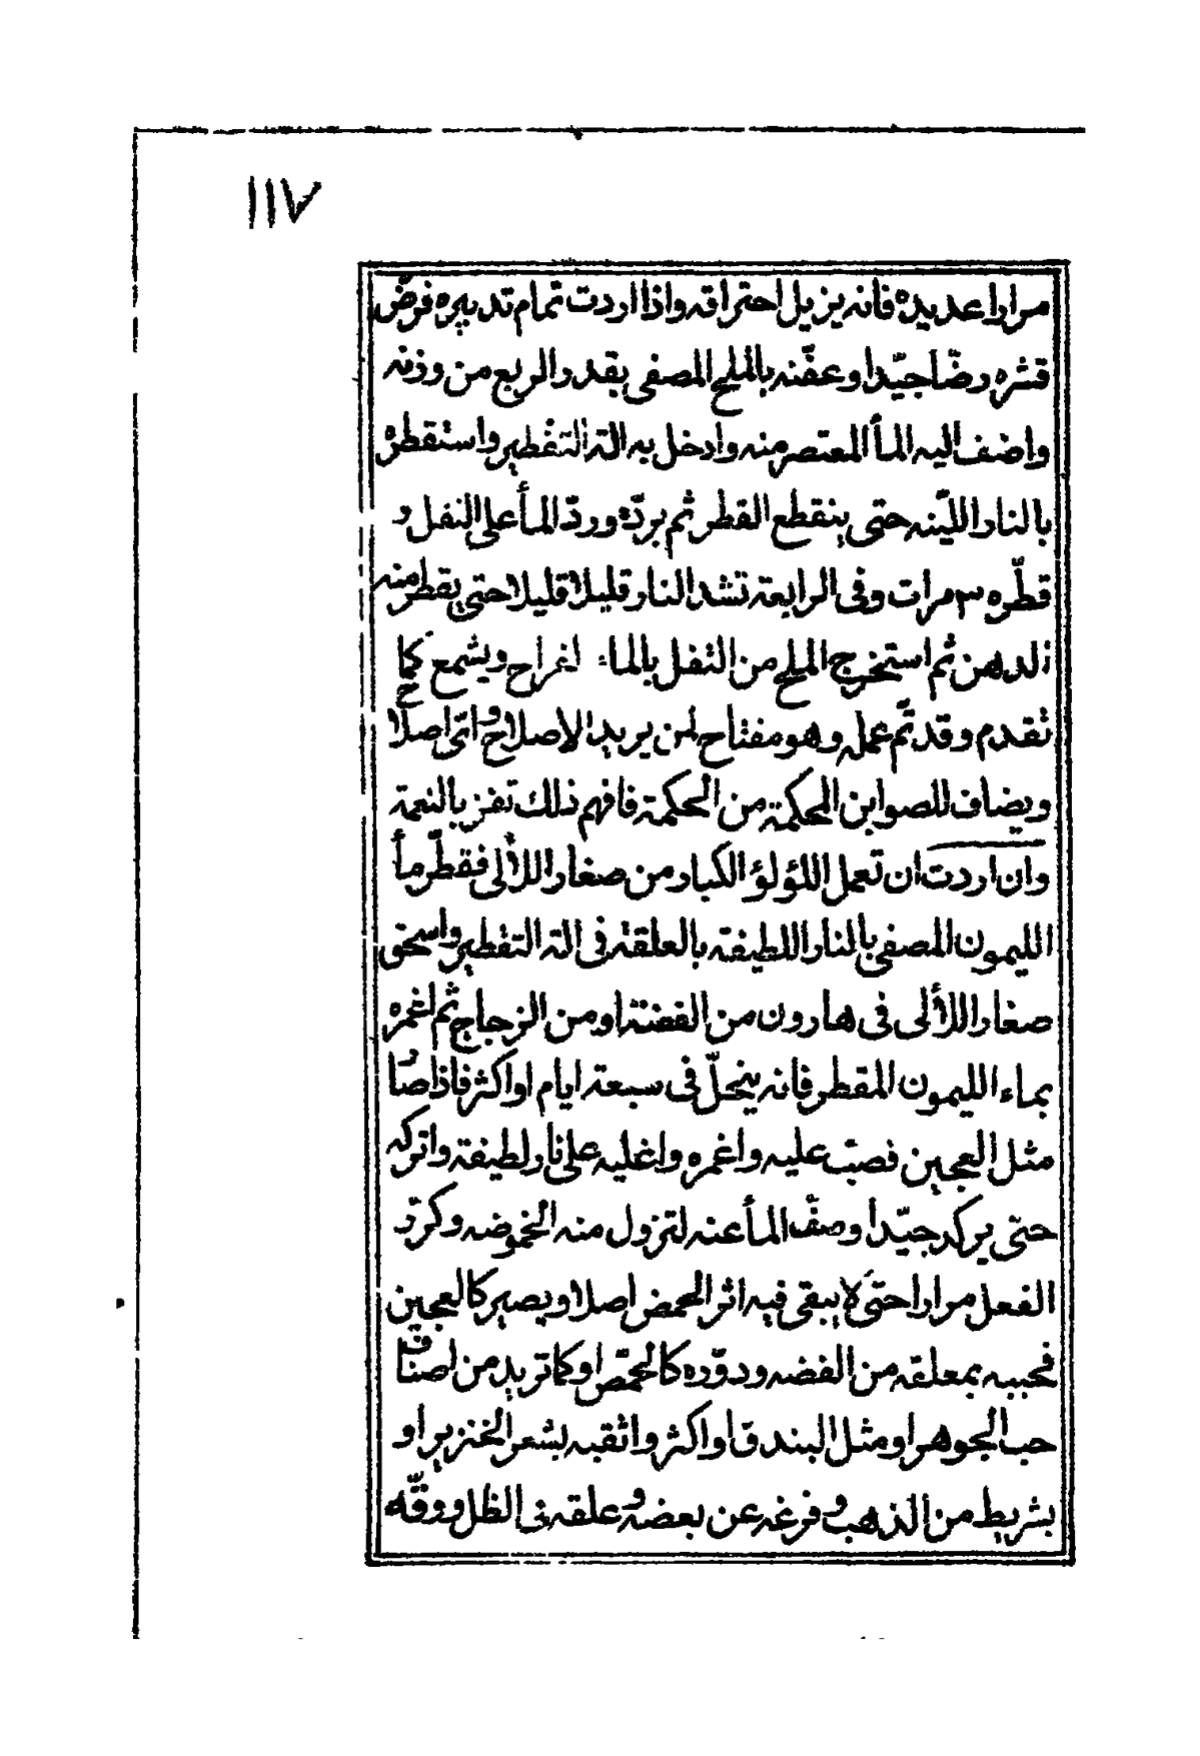 ١١٧
مرارا عديده فانه يزيل احتراقه واذا اردت تمام تدبيره فرضّ
قشره رضّا جيّدا وعفّنه بالملح المصفى بقدر الربع من وزنه
واضف اليه المأ المعتصر منه وادخل به الة التقطير واستقطره
بالنار الليّنه حتى ينقطع القطر ثم بردّه وردّ المأ على الثفل و
قطّره ٣ مرات وفى الرابعة تشد النار قليلا قليلا حتى يقطر منه
الدهن ثم استخرج الملح من الثفل بالماء القراح ويشمع كما
تقدم وقد تّم عمله وهو مفتاح لمن يريد الاصلاح واتى اصلا
ويضاف للصوابن المحكمة من الحكمة فافهم ذلك تفز بالنعمة
وان اردت ان تعمل اللؤلؤ الكبار من صغار اللألى فقطّر مأ
الليمون المصفى بالنار اللطيفة بالعلقة فى الة التقطير واسحق
صغار اللألى فى هارون من الفضة او من الزجاج ثم اغمره
بماء الليمون المقطر فانه ينحلّ فى سبعة ايام او اكثر فاذا صار
مثل العجين فصبّ عليه واغمره واغليه على نار لطيفة واتركه
حتى يركد جيّدا وصفّ المأ عنه لتزول منه الحموضه وكرّر
الفعل مرارا حتى لا يبقى فيه اثر الحمض اصلا ويصير كالعجين
فحببه بمعلقه من الفضه ودوّره كالحمّص او كما تريد من اصناف
حب الجوهر او مثل البندق او اكثر واثقبه بشعر الخنزير او
بشريط من الذهب وفرغه عن بعضه وعلقه فى الظل ووقّه